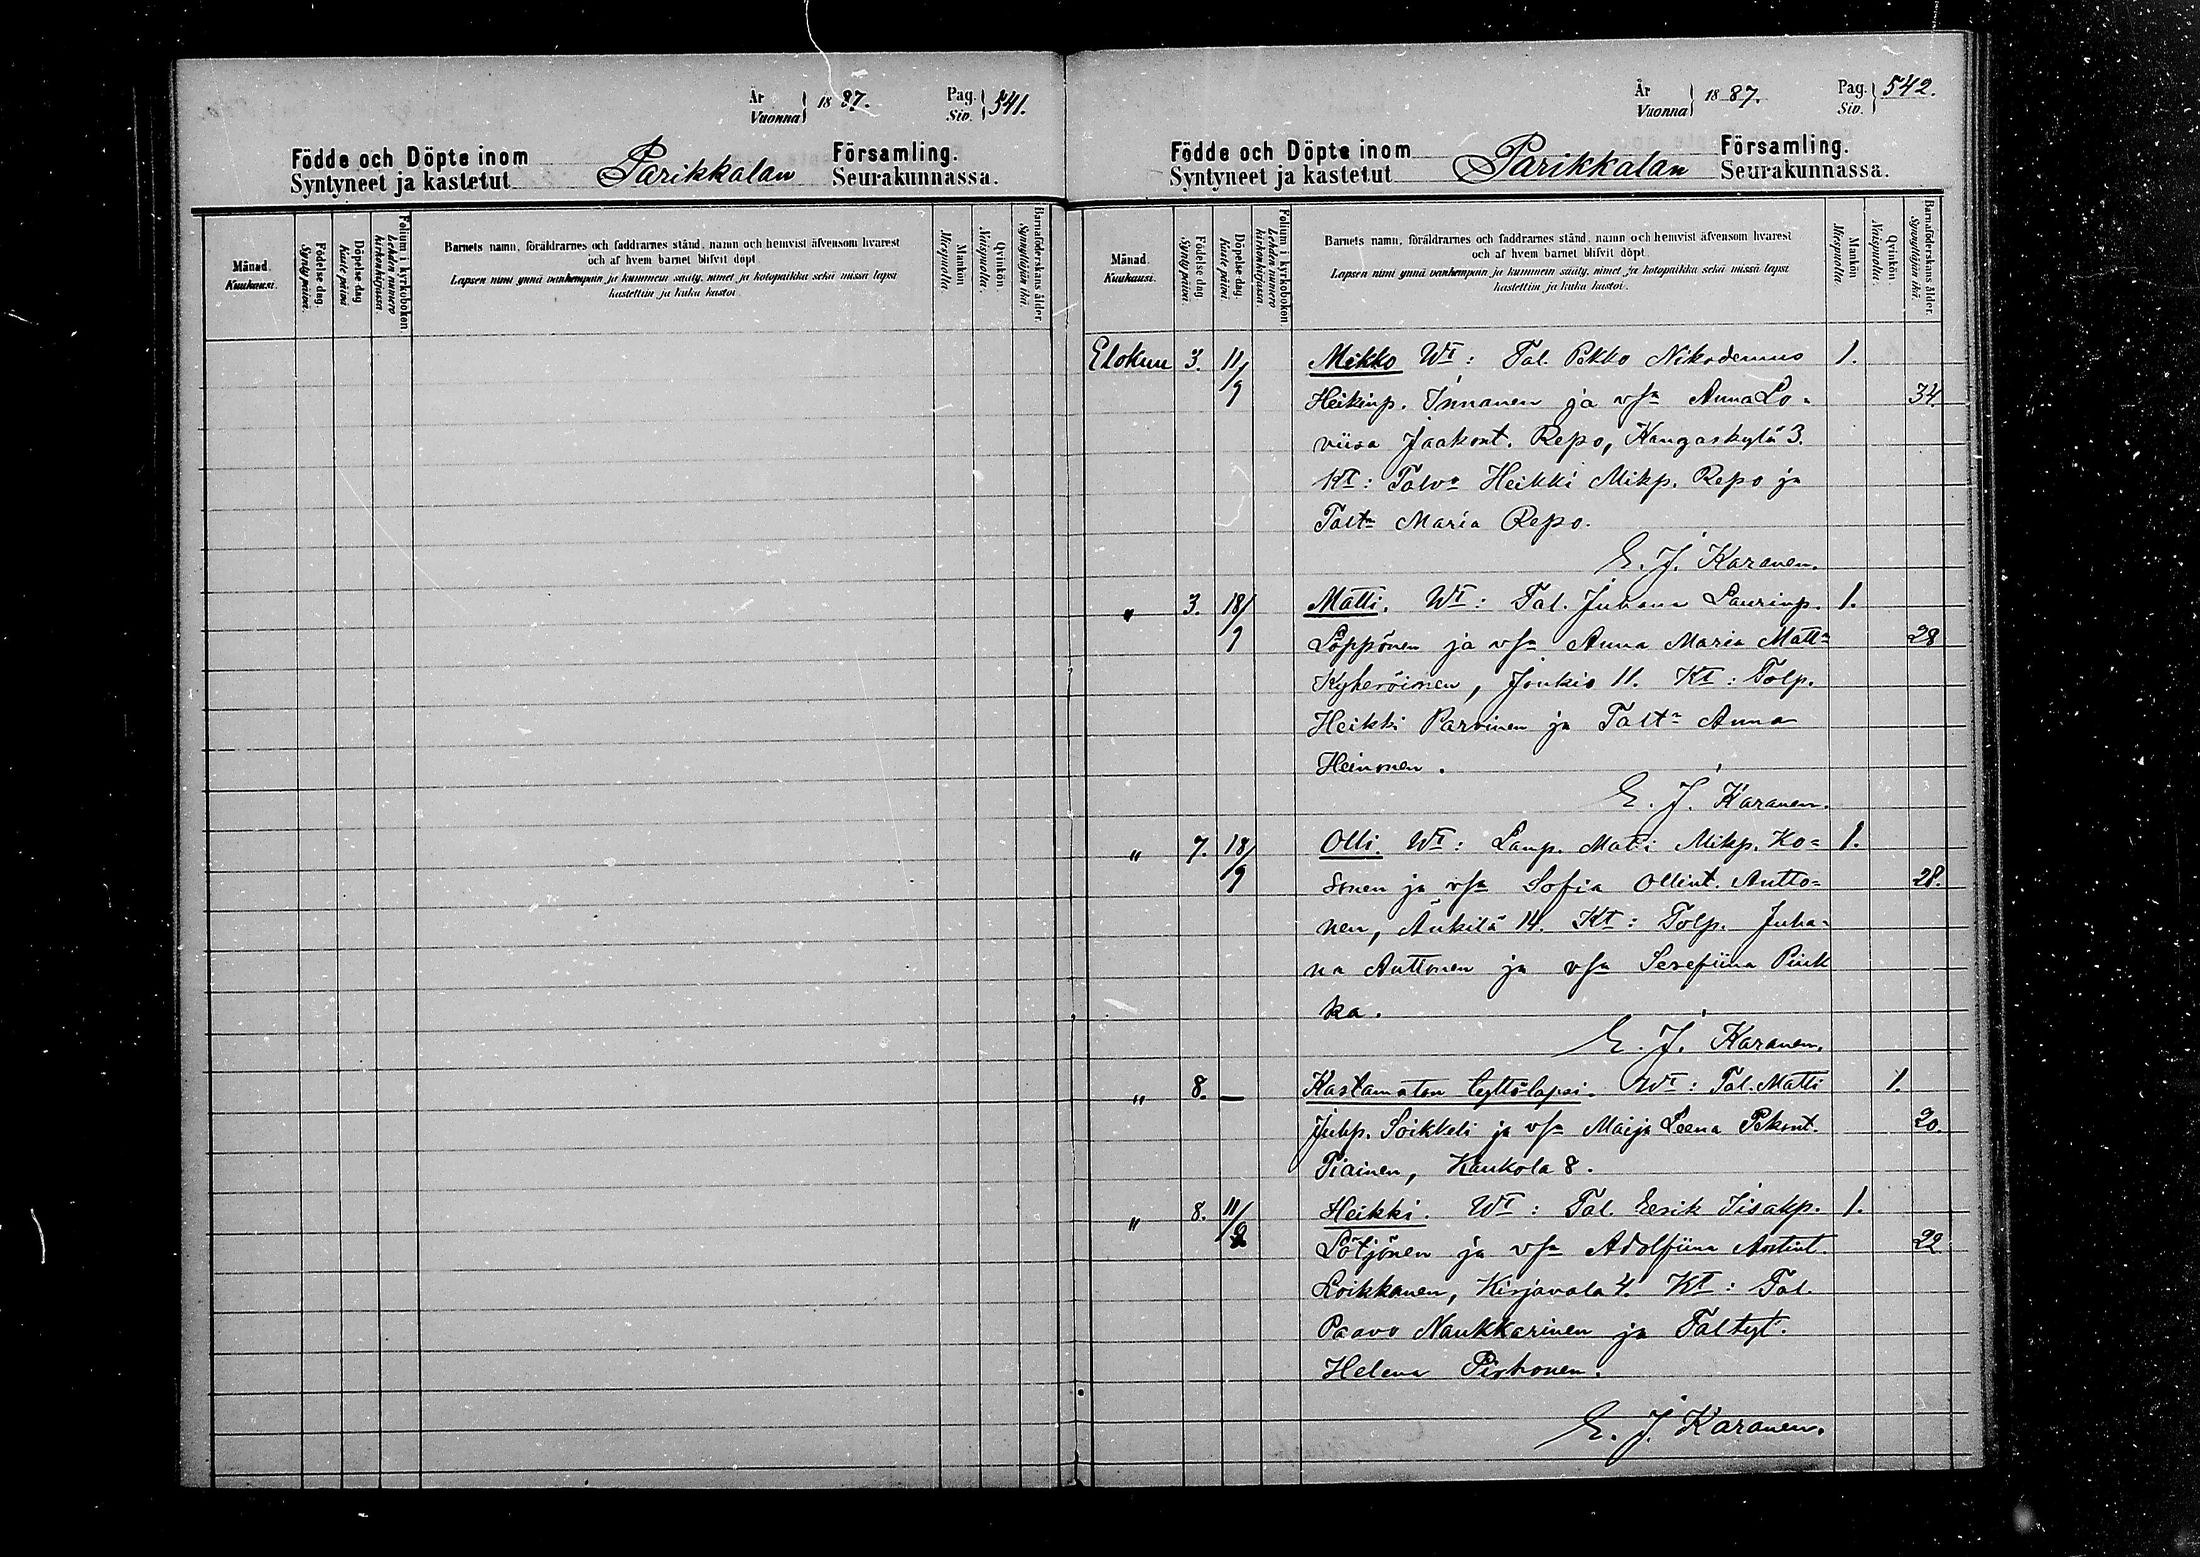 År
Vuonna } 18 87. Pag.
Siv. } 541.
Födde och Döpte inom Parikkalan Församling.
Syntyneet ja kastetut Seurakunnassa.
Månad. Kuukausi.
Födelse dag. Synty päivä.
Döpelse dag. Kaste päivä
Folium i kyrkoboken. Lehden numero kirkonkirjassa.
Barnets namn, föräldrarnes och faddrarnes stånd, namn och hemvist äfvensom hvarest
och af hvem barnet blifvit döpt.
Lapsen nimi ynnä vanhempain ja kummein sääty, nimet ja kotopaikka sekä missä lapsi
kastettiin ja kuka kastoi.
Mankön Miespuolta
Qvinkön. Naispuolta.
Barnaföderskans ålder. Synnyttäjän ikä.
År
Vuonna } 18 87. Pag.
Siv. } 542.
Födde och Döpte inom Parikkalan Församling.
Syntyneet ja kastetut Seurakunnassa.
Månad. Kuukausi.
Födelse dag. Synty päivä.
Döpelse dag. Kaste päivä.
Folium i kyrkoboken. Lehden numero kirkonkirjassa.
Barnets namn, föräldrarnes och faddrarnes stånd, namn och hemvist äfvensom hvarest
och af hvem barnet blifvit döpt.
Lapsen nimi ynnä vanhempain ja kummein sääty, nimet ja kotopaikka sekä missä lapsi
kastettiin ja kuka kastoi.
Mankön Miespuolta
Qvinkön. Naispuolta.
Barnaföderskans ålder. Synnyttäjän ikä.
Elokuu 3. 11/9 Mikko Wt: Tal. Pekko Nikodemus 1.
Heikinp. Innanen ja vsa Anna Lo= 34.
viisa Jaakont. Repo, Kangaskylä 3.
Kt: Talva Heikki Mikp. Repo ja
Talta Maria Repo.
E. J. Karanen.
" 3. 18/9 Matti. Wt: Tal. Juhana Laurinp. 1.
Löppönen ja vsa Anna Maria Matta 28
Kyheröinen, Joukio 11. Kt: Tolp.
Heikki Parvinen ja Talta Anna
Heinonen.
E. J. Karanen.
" 7. 18/9 Olli. Wt: Lamp. Matti Mikp. Ko= 1.
sonen ja vsa Sofia Ollint. Antto= 28.
nen, Änkilä 14. Kt: Tolp. Juha=
na Anttonen ja vsa Serefiina Pink
ka.
E. J. Karanen.
" 8. — Kastamaton tyttölapsi. Wt: Tal. Matti 1.
Juhp. Soikkeli ja vsa Maija Leena Pekont. 20.
Piainen, Kaukola 8.
" 8. 11/9 Heikki. Wt: Tal. Eerik Iisakp. 1.
Lötjönen ja vsa Adolfiina Antint. 22
Loikkanen, Kirjavala 4. Kt: Tal.
Paavo Naukkarinen ja Taltyt.
Helena Pirhonen.
E. J. Karanen.